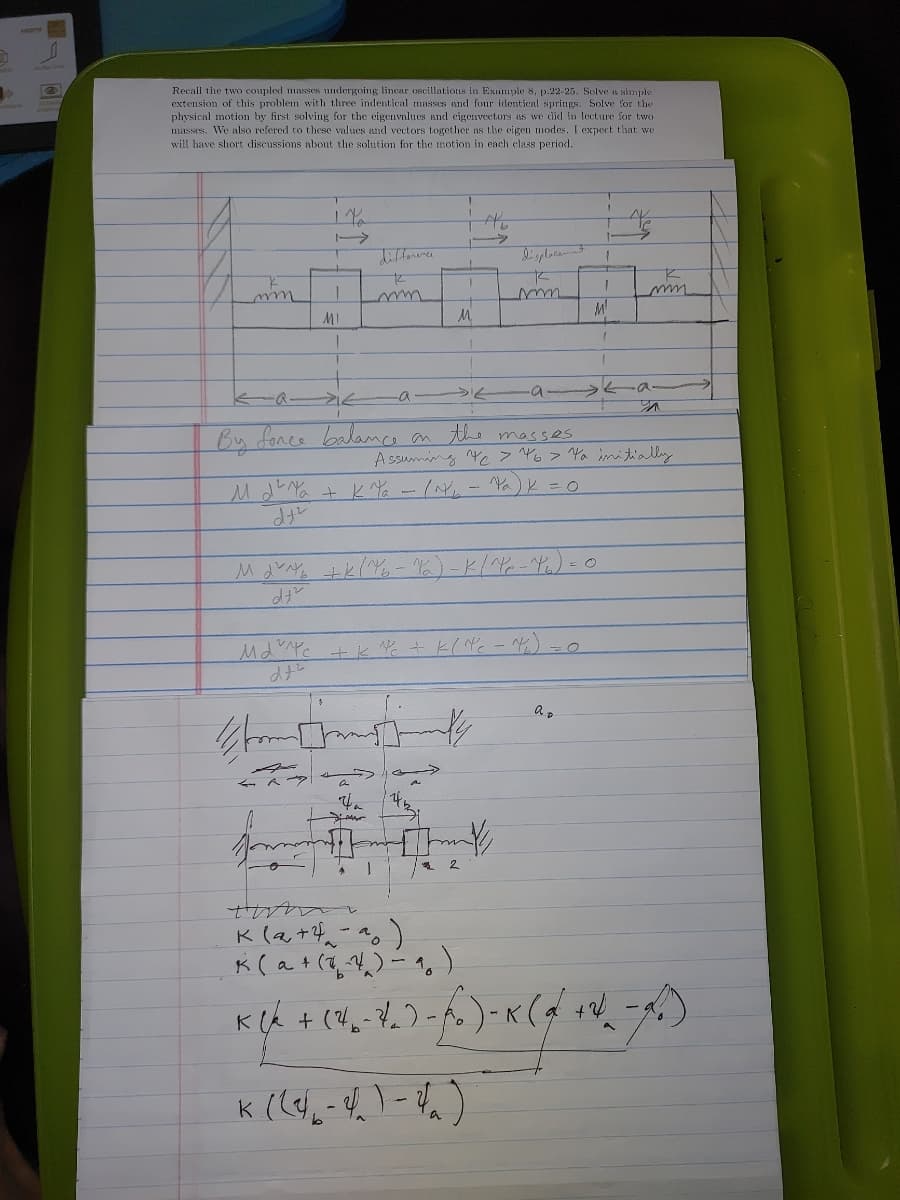 Recall the two coupled masses undergoing linear oscillations in Example 8, p.22-25. Solve a simple
extension of this problem with three indentical masses and four identical springs. Solve for the
physical motion by first solving for the eigenvalues and eigenvectors as we did in lecture for two
masses. We also refered to these values and vectors together as the eigen modes. I expect that we
will have short discussions about the solution for the motion in each class period.
ψa ψb ψc
difference displacement
k k k k
M M M
a a a a
By force balance on the masses
Assuming ψc > ψb > ψa initially
M d²ψa/dt² + kψa - (ψb - ψa)k = 0
M d²ψb/dt² + k(ψb - ψa) - k(ψc - ψb) = 0
M d²ψc/dt² + kψc + k(ψc - ψb) = 0
a₀
a a a
ψa ψb
0 1 2
K(a + ψa - a₀)
K(a + (ψb - ψa) - a₀)
K(a + (ψb - ψa) - a₀) - K(a + ψa - a₀)
K((ψb - ψa) - ψa)